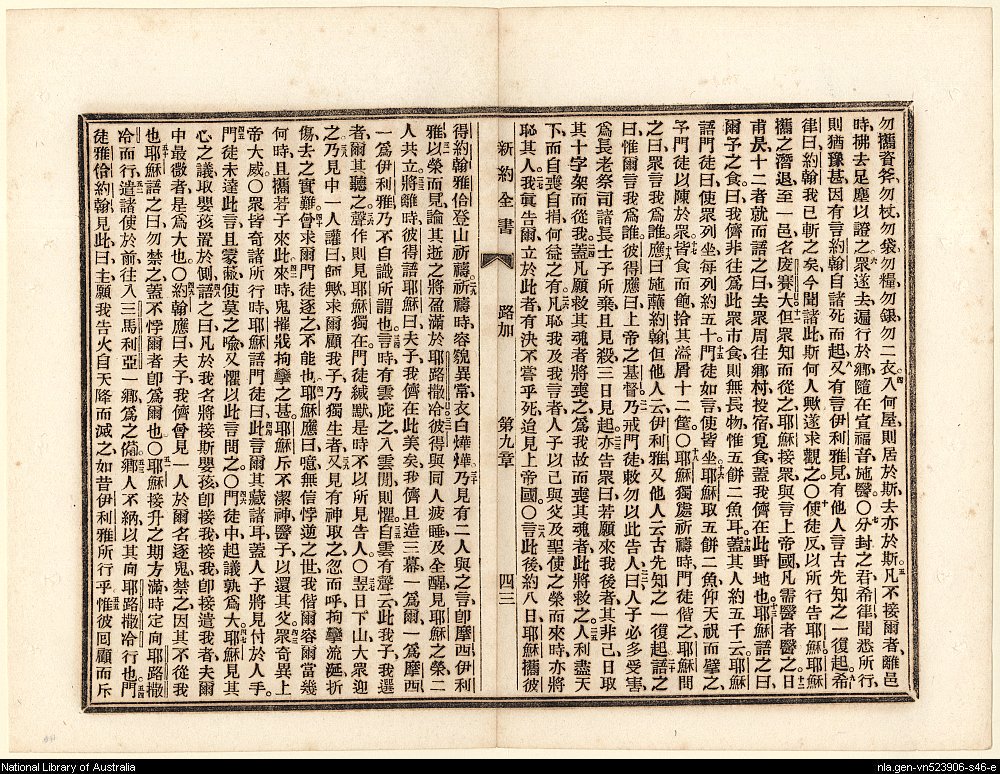 勿攜資斧勿杖勿袋勿糧勿銀勿二衣四入何屋則居於斯去亦於斯五凡不接爾者離邑
時拂去足塵以證之六眾遂去遍行於鄉隨在宣福音施醫○七分封之君希律聞悉所行
則猶豫甚因有言約翰自諸死而起八又有言伊利雅見有他人言古先知之一復起九希
律曰約翰我已斬之矣今聞諸此斯何人歟遂求觀之○十使徒反以所行告耶穌耶穌
攜之潛退至一邑名庶賽大十一但眾知而從之耶穌接眾與言上帝國凡需醫者醫之十二日
甫昃十二者就而語之曰去眾周往鄉村投宿覓食蓋我儕在此野地也十三耶穌語之曰
爾予之食曰我儕非往爲此眾市食則無長物惟五餅二魚耳十四蓋其人約五千云耶穌
語門徒曰使眾列坐每列約五十十五門徒如言使皆坐十六耶穌取五餅二魚仰天祝而擘之
予門徒以陳於眾十七皆食而飽拾其溢屑十二筐○十八耶穌獨處祈禱時門徒偕之耶穌問
之曰眾言我爲誰十九應曰施蘸約翰但他人云伊利雅又他人云古先知之一復起二十語之
曰惟爾言我爲誰彼得應曰上帝之基督二一乃戒門徒敕勿以此告人二二曰人子必多受害
爲長老祭司諸長士子所棄且見殺三日見起二三亦告眾曰若願來我後者其非己日取
其十字架而從我二四蓋凡願救其魂者將喪之爲我故而喪其魂者此將救之二五人利盡天
下而自喪自捐何益之有二六凡恥我及我言者人子以己與父及聖使之榮而來時亦將
恥其人二七我眞告爾立於此者有決不嘗乎死迨見上帝國○二八言此後約八日耶穌攜彼
新約全書 路加 第九章 四三
得約翰雅各登山祈禱二九祈禱時容貌異常衣白燁燁三十乃見有二人與之言卽摩西伊利
雅三一以榮而見論其逝之將盈滿於耶路撒冷三二彼得與同人疲睡及全醒見耶穌之榮二
人共立三三將離時彼得語耶穌曰夫子我儕在此美矣我儕且造三幕一爲爾一爲摩西
一爲伊利雅乃不自識所謂也三四言時有雲庇之入雲閒則懼三五自雲有聲云此我子我選
者爾其聽之三六聲作則見耶穌獨在門徒緘默是時不以所見告人○三七翌日下山大眾迎
之三八乃見中一人讙曰師歟求爾顧我子乃獨生者三九又見有神取之忽而呼拘攣流涎折
傷去之實難四十曾求爾門徒逐之不能也四一耶穌應曰噫無信悖逆之世我偕爾容爾當幾
何時且攜若子來此四二來時鬼摧戕拘攣之甚耶穌斥不潔神醫子以還其父四三眾奇異上
帝大威○眾皆奇諸所行時耶穌語門徒曰四四此言爾其藏諸耳蓋人子將見付於人手
四五門徒未達此言且蒙蔽使莫之喩又懼以此言問之○四六門徒中起議孰爲大四七耶穌見其
心之議取嬰孩置於側四八語之曰凡於我名將接斯嬰孩卽接我接我卽接遣我者夫爾
中最微者是爲大也○四九約翰應曰夫子我儕曾見一人於爾名逐鬼禁之因其不從我
也五十耶穌語之曰勿禁之蓋不悖爾者卽爲爾也○五一耶穌接升之期方滿時定向耶路撒
冷而行五二遣諸使於前往入三馬利亞一鄉爲之備五三鄉人不納以其向耶路撒冷行也五四門
徒雅各約翰見此曰主願我告火自天降而滅之如昔伊利雅所行乎五五惟彼回顧而斥
National Library of Australia
nla.gen-vn523906-s46-e